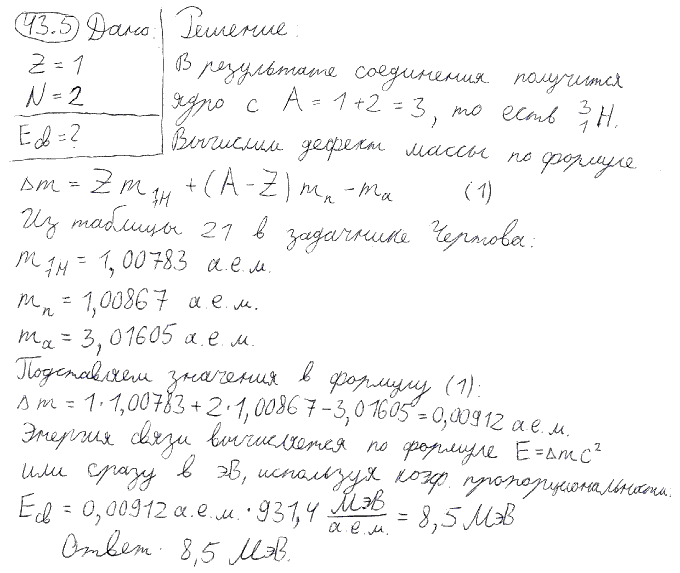 43.5 Дано:
Z = 1
N = 2
Eсв = ?
Решение:
В результате соединения получится
ядро с A = 1 + 2 = 3, то есть ³₁H.
Вычислим дефект массы по формуле
Δm = Z m₁¹H + (A - Z) mₙ - mₐ (1)
Из таблицы 21 в задачнике Чертова:
m₁¹H = 1,00783 а.е.м.
mₙ = 1,00867 а.е.м.
mₐ = 3,01605 а.е.м.
Подставляем значения в формулу (1):
Δm = 1·1,00783 + 2·1,00867 - 3,01605 = 0,00912 а.е.м.
Энергия связи вычисляется по формуле E = Δmc²
или сразу в эВ, используя коэф. пропорциональности:
Eсв = 0,00912 а.е.м. · 931,4 МэВ/а.е.м. = 8,5 МэВ
Ответ. 8,5 МэВ.